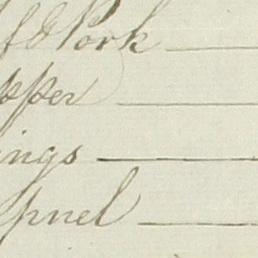 f & Pork
pper
ings
pnel